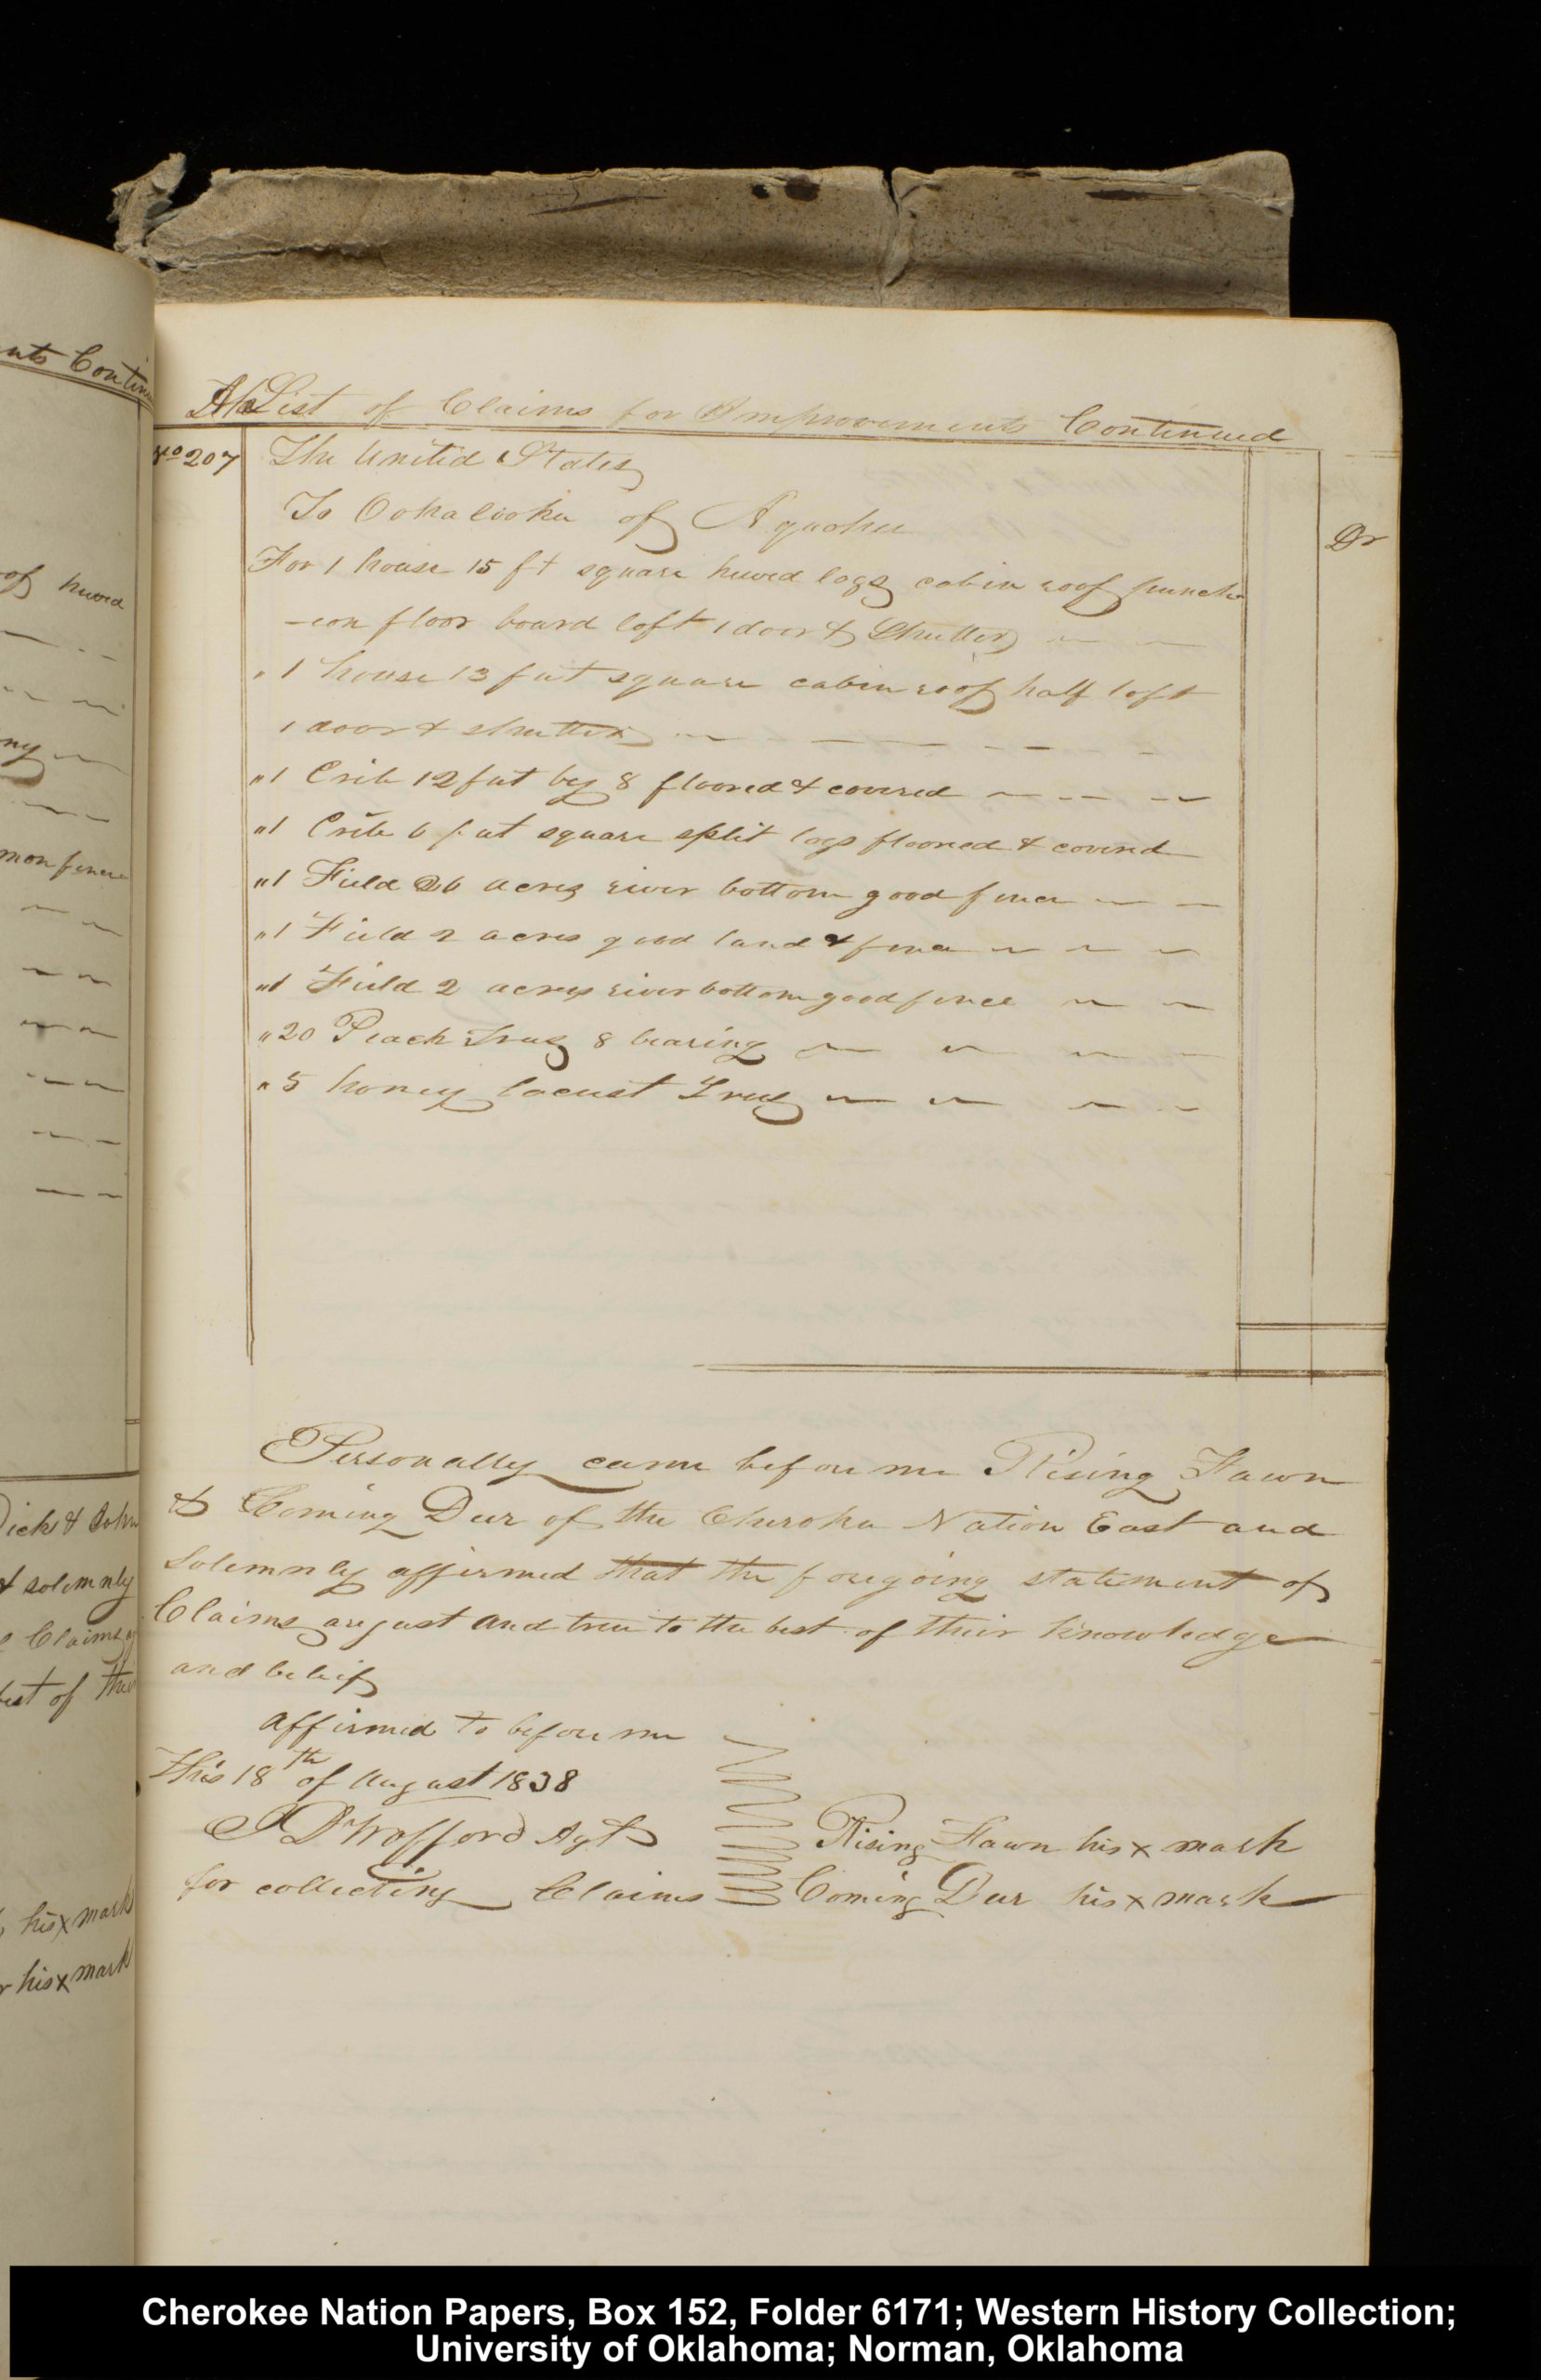 nts Contin
of hewed
ny
mon fence
Dick & John
& solemnly
e Claims of
best of their
his x mark
r his x mark
A List of Claims for Improvements Continued
No 207 The United States
To Ookalooka of Aquohee
Dr
For 1 house 15 ft square hewed logs cabin roof punch
-eon floor board loft 1 door & Shutter
" 1 house 13 feet square cabin roof half loft
1 door & shutter
" 1 Crib 12 feet by 8 floored & covered
" 1 Crib 6 feet square split logs floored & coverd
" 1 Field 26 acres river bottom good fence
" 1 Field 2 acres good land & fence
" 1 Field 2 acres river bottom good fence
" 20 Peach Trees 8 bearing
" 5 honey locust Trees
Personally came before me Rising Fawn
& Coming Deer of the Cherokee Nation East and
Solemnly affirmed that the foregoing statement of
Claims are just and true to the best of their Knowledge
and beleif
affirmed to before me
This 18th of August 1838
J D Wofford Agt
Rising Fawn his x mark
for collecting Claims
Coming Deer his x mark
Cherokee Nation Papers, Box 152, Folder 6171; Western History Collection;
University of Oklahoma; Norman, Oklahoma